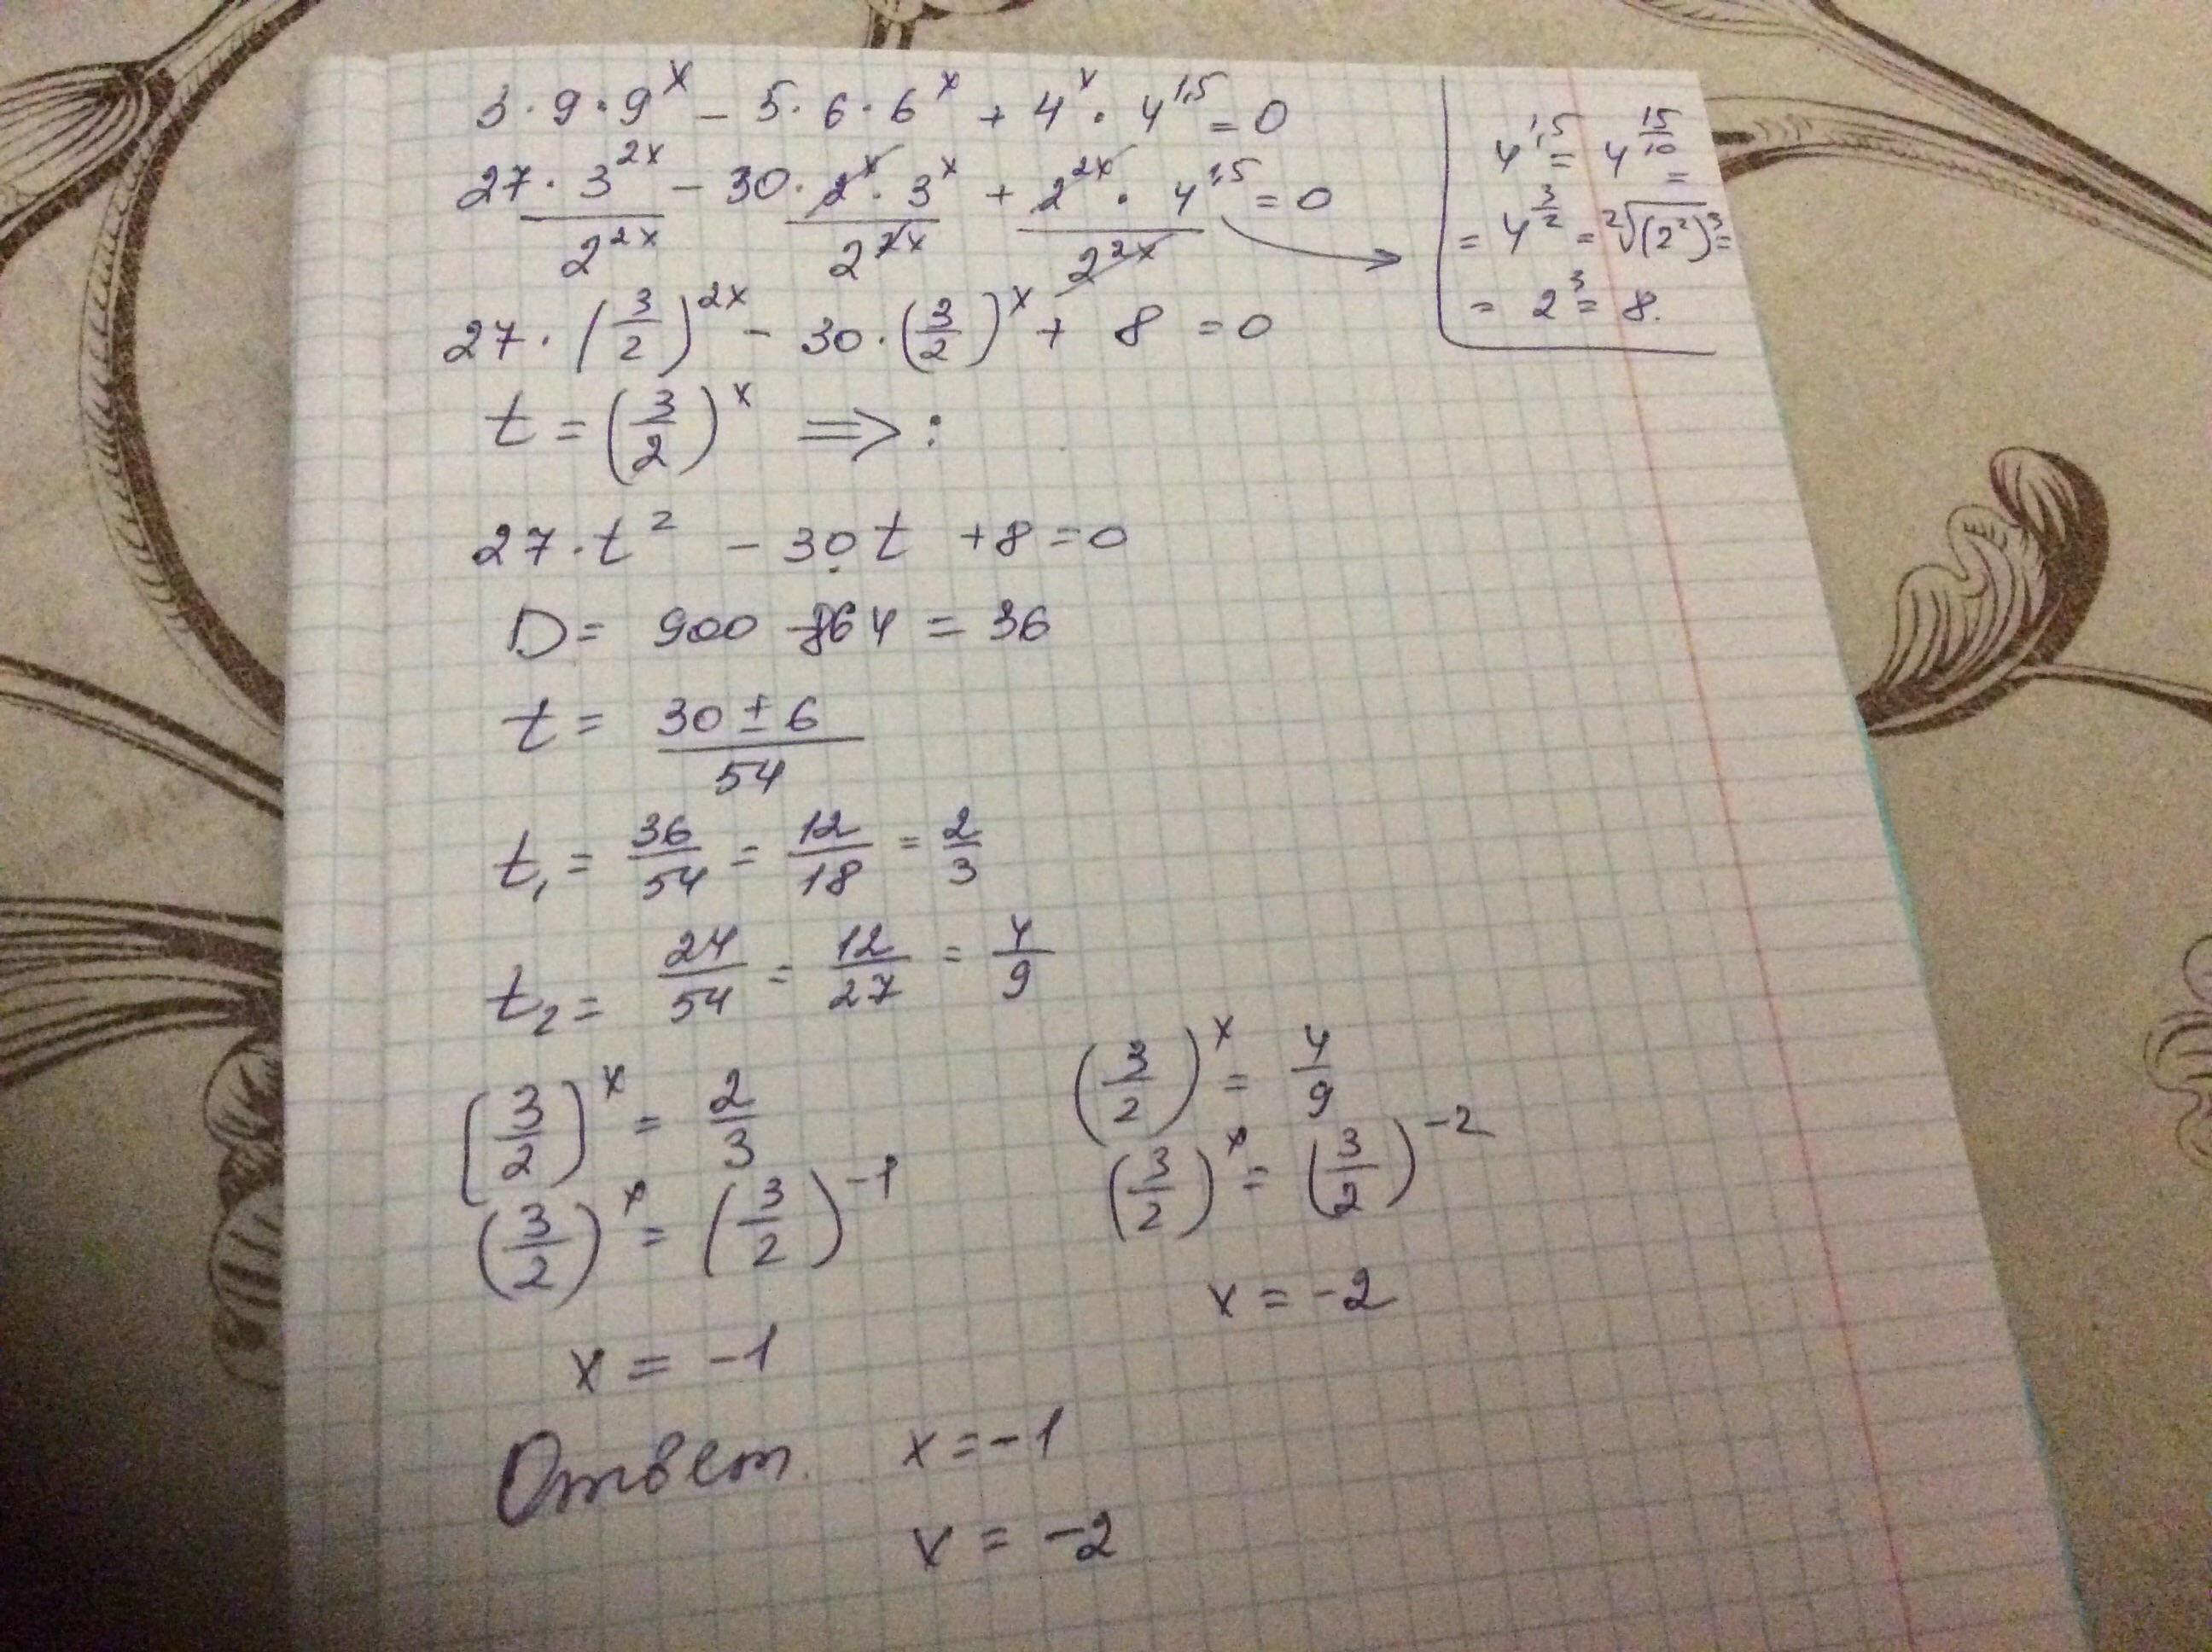 3·9·9^x − 5·6·6^x + 4^x·4^1,5 = 0
27·3^2x/2^2x − 30·2^x·3^x/2^2x + 2^2x·4^1,5/2^2x = 0
4^1,5 = 4^15/10 =
= 4^3/2 = ²√(2²)³ =
= 2³ = 8.
27·(3/2)^2x − 30·(3/2)^x + 8 = 0
t = (3/2)^x ⟹ :
27·t² − 30t + 8 = 0
D = 900 − 864 = 36
t = 30 ± 6/54
t₁ = 36/54 = 12/18 = 2/3
t₂ = 24/54 = 12/27 = 4/9
(3/2)^x = 2/3
(3/2)^x = (3/2)^−1
x = −1
(3/2)^x = 4/9
(3/2)^x = (3/2)^−2
x = −2
Ответ. x = −1
x = −2